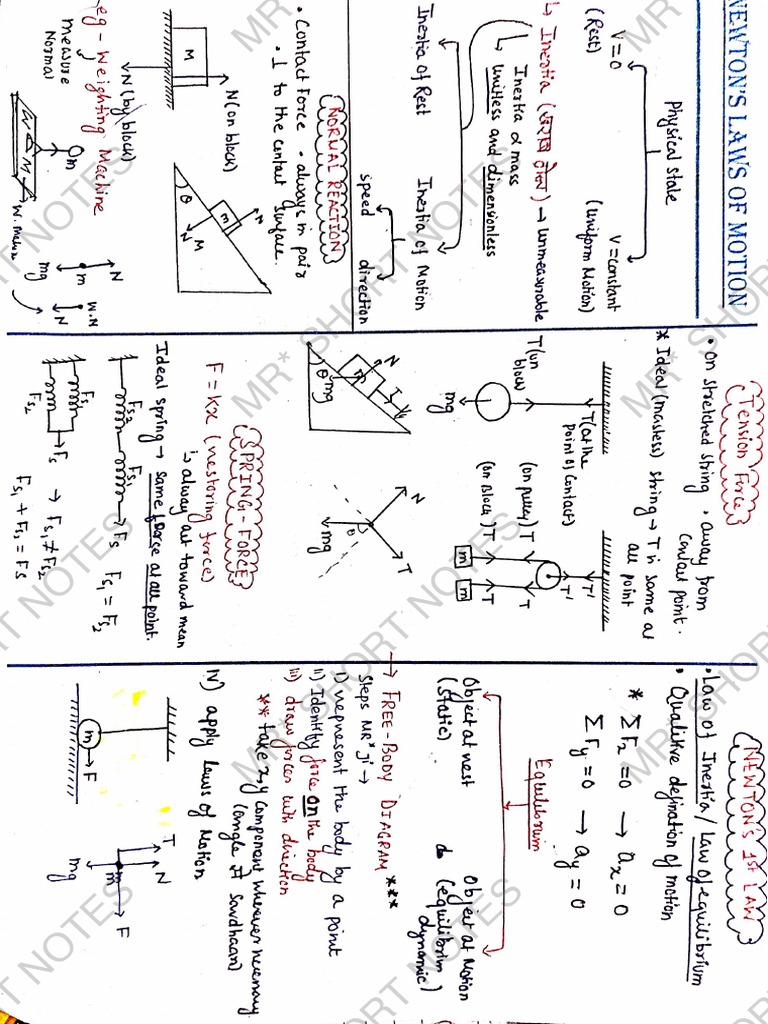 NEWTON'S LAWS OF MOTION
Physical state
V=0
(Rest)
V=constant
(Uniform Motion)
↳ Inertia (जड़त्व) → unmeasurable
Inertia α mass
↳ unitless and dimensionless
Inertia of Rest
Inertia of Motion
speed
direction
NORMAL REACTION
• Contact Force • always in pair
• ⊥ to the contact surface.
M
N (on block)
N (by block)
m
N
N
M
θ
eg - Weighting Machine
measure
Normal
m
W. Machine
N
m
mg
W.M
N
Tension Force
• on stretched string • away from
contact point.
* Ideal (massless) string → T is same at
all point
T (at the
point of contact)
T (on
block)
mg
T'
T'
(on pulley) T
T
(on Block) T
T
m
m
N
T
m
mg
θ
N
T
θ
mg
SPRING-FORCE
F = kx (restoring force)
↳ always act toward mean
Ideal spring → same force at all point.
Fs2
Fs1
Fs
Fs1 = Fs2
Fs1
Fs2
Fs
→ Fs1 ≠ Fs2
Fs1 + Fs2 = Fs
NEWTON'S 1ST LAW
• Law of Inertia / Law of equilibrium
• Qualitive defination of motion
* ΣFx = 0 → ax = 0
ΣFy = 0 → ay = 0
Equilibrium
Object at rest
(static)
Object at Motion
(equilibrium
dynamic)
→ FREE-BODY DIAGRAM ***
Steps MR* ji →
i) represent the body by a point
ii) Identify force on the body
iii) draw forces with direction
** take x,y component wherever necessary
(angle se Savdhaan)
iv) apply laws of Motion
m
F
T
N
m
F
mg
MR* SHORT NOTES